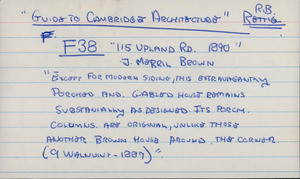 "GUIDE TO CAMBRIDGE ARCHITECTURE" R.B. RETTIG
F.
F38 "115 UPLAND RD. 1890"
J. MERRIL BROWN
"EXCEPT FOR MODERN SIDING, THIS EXTRAVAGANTLY
PORCHED AND GABLED HOUSE REMAINS
SUBSTANTIALLY AS DESIGNED. ITS PORCH
COLUMNS ARE ORIGINAL, UNLIKE THOSE
ANOTHER BROWN HOUSE AROUND THE CORNER.
(9 WALNUT - 1889)"